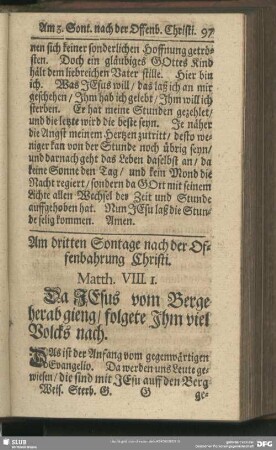 Am 3. Sont. nach der Offenb. Christi. 97
nen sich keiner sonderlichen Hoffnung getrö-
sten. Doch ein gläubiges GOttes Kind
hält dem liebreichen Vater stille. Hier bin
ich. Was JEsus will / das laß ich an mir
geschehen / Ihm hab ich gelebt / Ihm will ich
sterben. Er hat meine Stunden gezehlet /
und die letzte wird die beste seyn. Je näher
die Angst meinem Hertzen zutritt / desto we-
niger kan von der Stunde noch übrig seyn /
und darnach geht das Leben daselbst an / da
keine Sonne den Tag / und kein Mond die
Nacht regiert / sondern da GOtt mit seinem
Lichte allen Wechsel der Zeit und Stunde
auffgehoben hat. Nun JEsu laß die Stun-
de selig kommen. Amen.
Am dritten Sontage nach der Of-
fenbahrung Christi.
Matth. VIII 1.
Da JEsus vom Berge
herab gieng / folgete Jhm viel
Volcks nach.
DAs ist der Anfang vom gegenwärtigen
Evangelio. Da werden uns Leute ge-
wiesen / die sind mit JEsu auff den Berg
Weis. Sterb. G. G ge-
SLUB
DFG